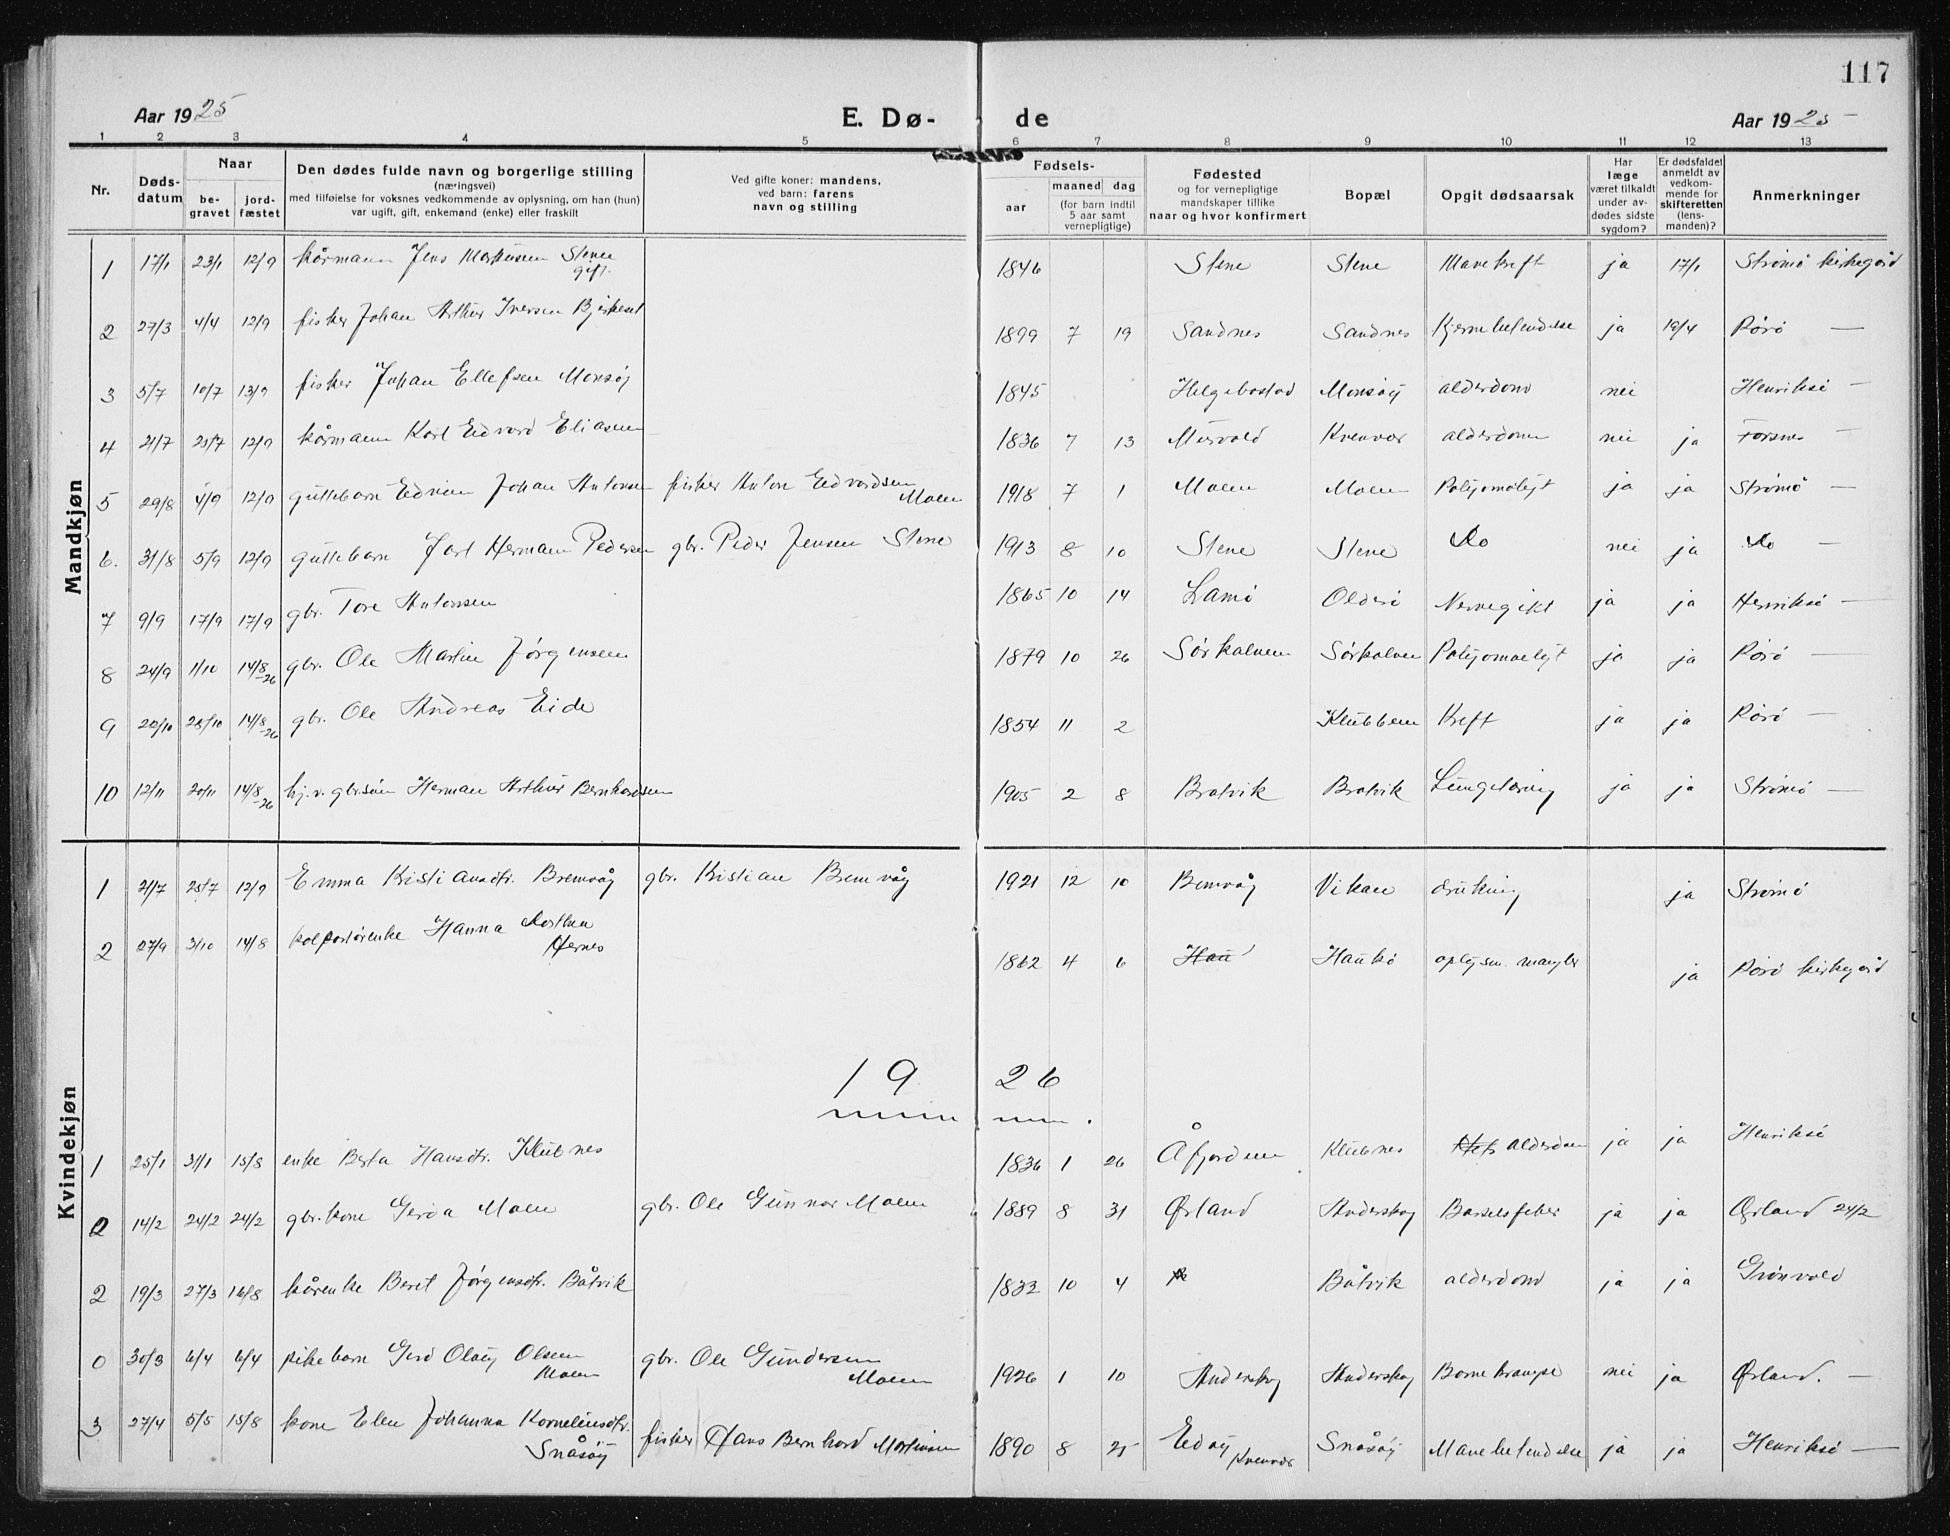 117
Aar 1925 E. Dø- de Aar 1925
1 2 3 4 5 6 7 8 9 10 11 12 13
Nr. Døds-datum Naar be-gravet jord-fæstet Den dødes fulde navn og borgerlige stilling (næringsvei) med tilføielse for voksnes vedkommende av oplysning, om han (hun) var ugift, gift, enkemand (enke) eller fraskilt Ved gifte koner: mandens, ved barn: farens navn og stilling Fødsels- aar maaned dag (for barn indtil 5 aar samt vernepligtige) Fødested og for vernepligtige mandskaper tillike naar og hvor konfirmert Bopæl Opgit dødsaarsak Har læge været tilkaldt under av-dødes sidste sygdom? Er dødsfaldet anmeldt av vedkom-mende for skifteretten (lens-manden)? Anmerkninger
Mandkjøn
1 17/1 23/1 12/9 kårmann Jens Markussen Stene gift. 1846 Stene Stene Mavekreft ja 17/1 Strømø kirkegård
2 27/3 4/4 12/9 fisker Johan Arthur Iversen Bjerkeset 1899 7 19 Sandnes Sandnes Hjernebetendelse ja 19/4 Rörö —
3 5/7 10/7 13/9 fisker Johan Ellefsen Monsöy 1845 Helgebostad Monsöy alderdom nei Henriksö —
4 21/7 25/7 12/9 kårmann Karl Edvard Eliasen 1836 7 13 Kvenvær alderdom nei ja Forsnes —
5 29/8 4/9 12/9 guttebarn Edvin Johan Antonsen fisker Anton Edvardsen Moen 1918 7 1 Moen Moen Poliomelyt ja ja Strømö —
6. 31/8 5/9 12/9 guttebarn Jarl Herman Pedersen gbr. Peder Jensen Stene 1913 8 10 Stene Stene do nei ja do —
7 9/9 17/9 17/9 gbr. Tore Antonsen 1865 10 14 Lamö Olderö Nervegikt ja ja Henriksö —
8 24/9 1/10 14/8-26 gbr. Ole Martin Jörgensen 1879 10 26 Sörkalven Sörkalven Poliyomaelyt ja ja Rörö —
9 20/10 28/10 14/8-26 gbr. Ole Andreas Eide 1854 11 2 Klubben Kreft ja ja Rörö —
10 12/11 20/11 14/8-26 hj.v. gbr.søn Herman Arthur Bernhardsen 1905 2 8 Bratvik Bratvik Lungetæring ja ja Strömö —
Kvindekjøn
1 21/7 25/7 12/9 Emma Kristiansdtr. Bremvåg gbr. Kristian Bremvåg 1921 12 10 Bremvåg Vikan drukning ja Strömö
2 27/9 3/10 14/8 kolportörenke Hanna Dorthea Hernes 1862 4 6 Hau Haukö oplysn. mangler ja Rörö kirkegård
1926
1 25/1 31/1 15/8 enke Berta Hansdtr. Klubnes 1836 1 26 Åfjorden Klubnes alderdom ja ja Henriksö
0 14/2 24/2 24/2 gbr.kone Gerda Moen gbr. Ole Gunnar Moen 1889 8 31 Ørland Anderskog Barselfeber ja ja Ørland 24/2
2 19/3 27/3 16/8 kårenke Beret Jörgensdtr. Båtvik 1832 10 4 Båtvik alderdom ja ja Grönvold
0 30/3 6/4 6/4 pikebarn Gerd Olaug Olsen Moen gbr. Ole Gundersen Moen 1926 1 10 Anderskog Anderskog Barnekrampe nei ja Ørland. —
3 27/4 5/5 15/8 kone Elen Johanna Korneliusdtr. Snåsöy fisker Hans Bernhard Martinsen 1890 8 25 Edöy Kvenvær Snåsöy Mavebetendelse ja ja Henriksö —